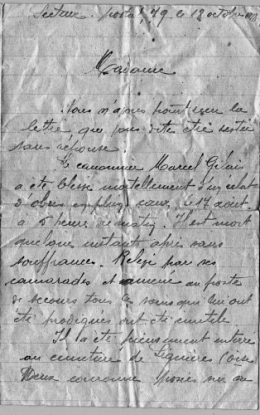 Secteur postal 179 le 12 octobre
Madame
Nous n'avons point reçu la
lettre que vous dites être restée
sans réponse.
Le canonnier Marcel
a été blessé mortellement d'un éclat
d'obus en plein cœur le 17 août
à 5 heures du matin. Il est mort
quelques instants après sans
souffrances. Relevé par ses
camarades et amené au poste
de secours tous les soins qui lui ont
été prodigués ont été inutiles
Il a été pieusement enterré
au cimetière de
couronne